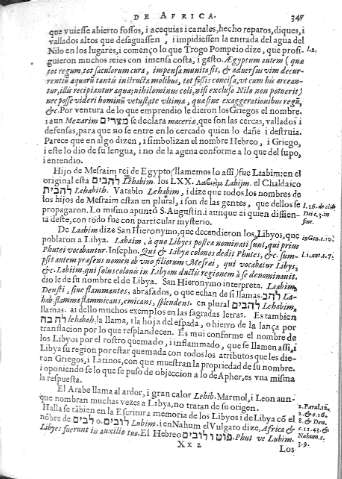 DE AFRICA. 347
que vuiesse abierto fossos, i acequias i canales, hecho reparos, diques, i
vallados altos que desaguassen, i impidiessen la entrada del agua del
Nilo en los lugares, i començo lo que Trogo Pompeio dize, que prosi-
guieron muchos reies con imensa costa, i gasto. Ægyptum autem (quo
tot regum, tot sæculorum cura, impensa munita sit, & adversus vim decur-
rentiũ aquarũ tantis instructa molibus, tot fossis concisa, ut cum his arcean-
tur, illis recipiantur aquæ; nihilominus coli, nisi excluso Nilo non potuerit)
nec posse videri hominũ vetustate ultima, quæ sive exaggerationibus regũ,
&c. Por ventura de lo que emprendio le dieron los Griegos el nombre.
i aun Mezarim מצרים se declara maceria, que son las cercas, vallados i
defensas, para que no se entre en lo cercado quien lo dañe i destruia.
Parece que en algo dizen, i simbolizan el nombre Hebreo, i Griego,
i esse lo dio de su lengua, i no de la agena conforme a lo que del supo,
i entendio.
Hijo de Mesraim rei de Egypto (llamemos lo assi) fue Laabim: en el
original esta להבים Lehabim. los LXX. Λαβιείμ Labiim. el Chaldaico
Lehabith. Vatablo Lehabim, i dize que todos los nombres de
los hijos de Mesraim estan en plural, i son de las gentes, que dellos se
propagaron. Lo mismo apuntò S. Augustin. i aunque ai quien dissien-
ta deste, con todo fue con particular misterio.
De Laabim dize San Hieronymo, que decendieron los Libyos, que
poblaron a Libya. Labaim, à quo Libyes postea nominati sunt, qui prius
Phutei vocabantur. Iosepho. Qui & Libya colonos dedit Phutes, &c. Ium-
psit autem præsens nomen ab uno filiorum Mesræi, qui vocabatur Libys,
&c. Labiim, qui solus colonos in Libyam ductis regionem à se denominavit.
dio le de su nombre el de Libya. San Hieronymo interpreta. Laabim,
Densti, sive flammantes, abrasados, o que echan de si llamas. להב La-
hab flamma flammicans, emicans, splendens. en plural להבים Lehabim,
llamas. ai dello muchos exemplos en las sagradas letras. Es tambien
להבה lehabah, la llama, i la hoja del espada, o hierro de la lança por
translacion por lo que resplandecen. Es mui conforme el nombre de
los Libyos por el rostro quemado, i inflammado, que se llamen assi, i
Libya su region por estar quemada con todos los atributos que les die-
ran Griegos, i Latinos, con que muestran la propriedad de su nombre.
i oponiendo se lo que se puso de objeccion a lo de Apher, es una misma
la respuesta.
El Arabe llama al ardor, i gran calor Lehib. Marmol, i Leon aun-
que nombran muchas vezes a Libya, no tratan de su origen.
Halla se tãbien en la Escritura memoria de los Libyos i de Libya cõ el
nõbre de לבים o לובים Lubim. i en Nahum el Vulgato dize, Africa &
Libyes fuerunt in auxilio tuo. El Hebreo פוט ולובים Phut ve Lubim.
Xx 2 Los